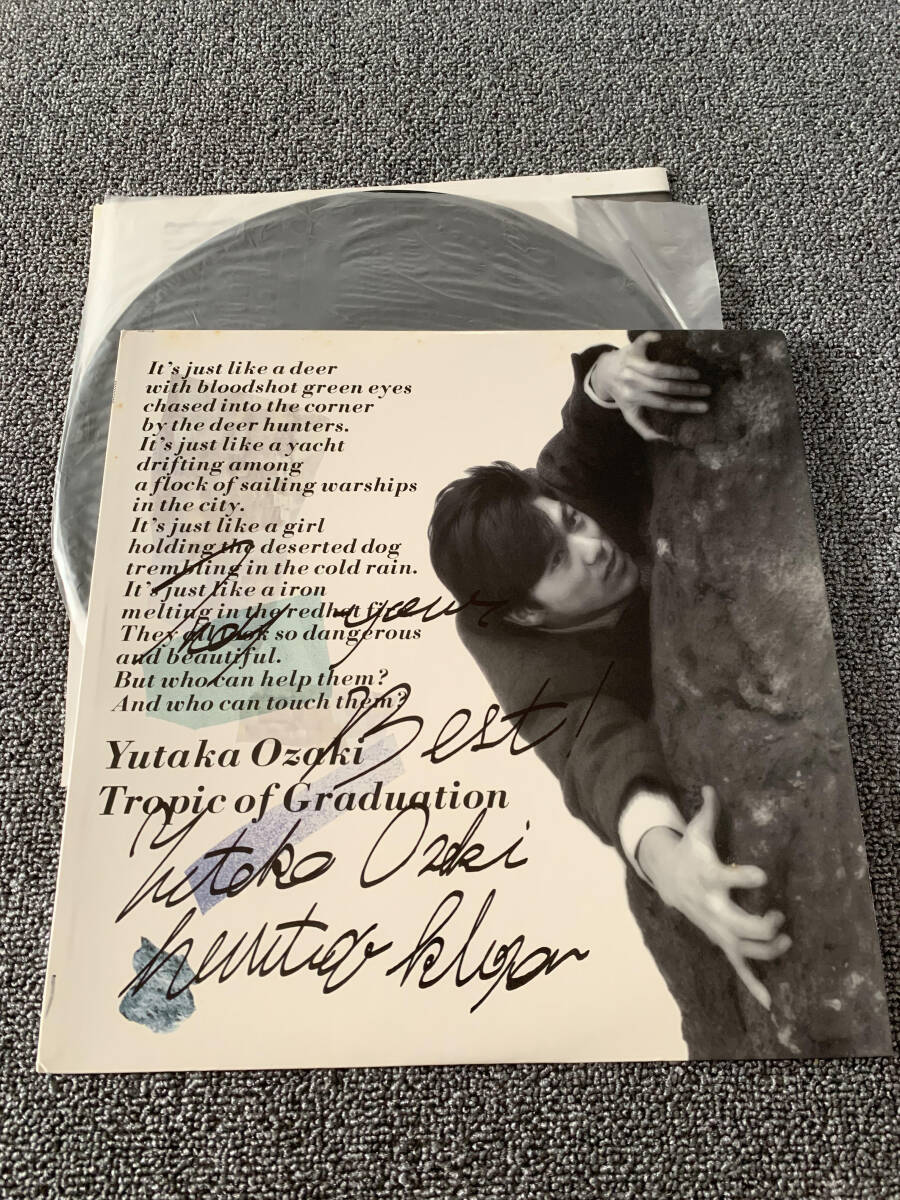 It's just like a deer
with bloodshot green eyes
chased into the corner
by the deer hunters.
It's just like a yacht
drifting among
a flock of sailing warships
in the city.
It's just like a girl
holding the deserted dog
trembling in the cold rain.
It's just like a iron
melting in the redhot fire.
They all look so dangerous
and beautiful.
But who can help them?
And who can touch them?
Yutaka Ozaki
Tropic of Graduation
your
Best!
Yutaka Ozaki